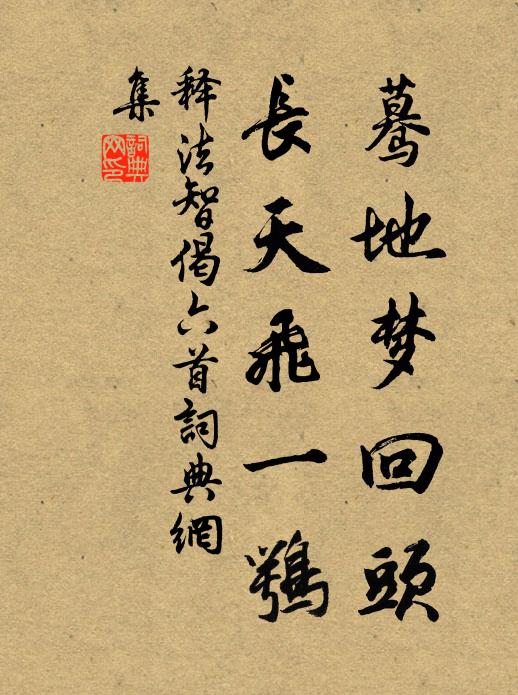 驀地梦回頭
長天飛一鶚
释法智偈六首詞典網
集
詞典网印